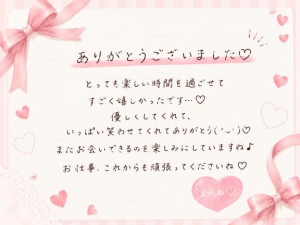 ありがとうございました♡
とっても楽しい時間を過ごせて
すごく嬉しかったです…♡
優しくしてくれて、
いっぱい笑わせてくれてありがとう(´˘`)♡
またお会いできるのを楽しみにしていますね♪
お仕事、これからも頑張ってくださいね♡